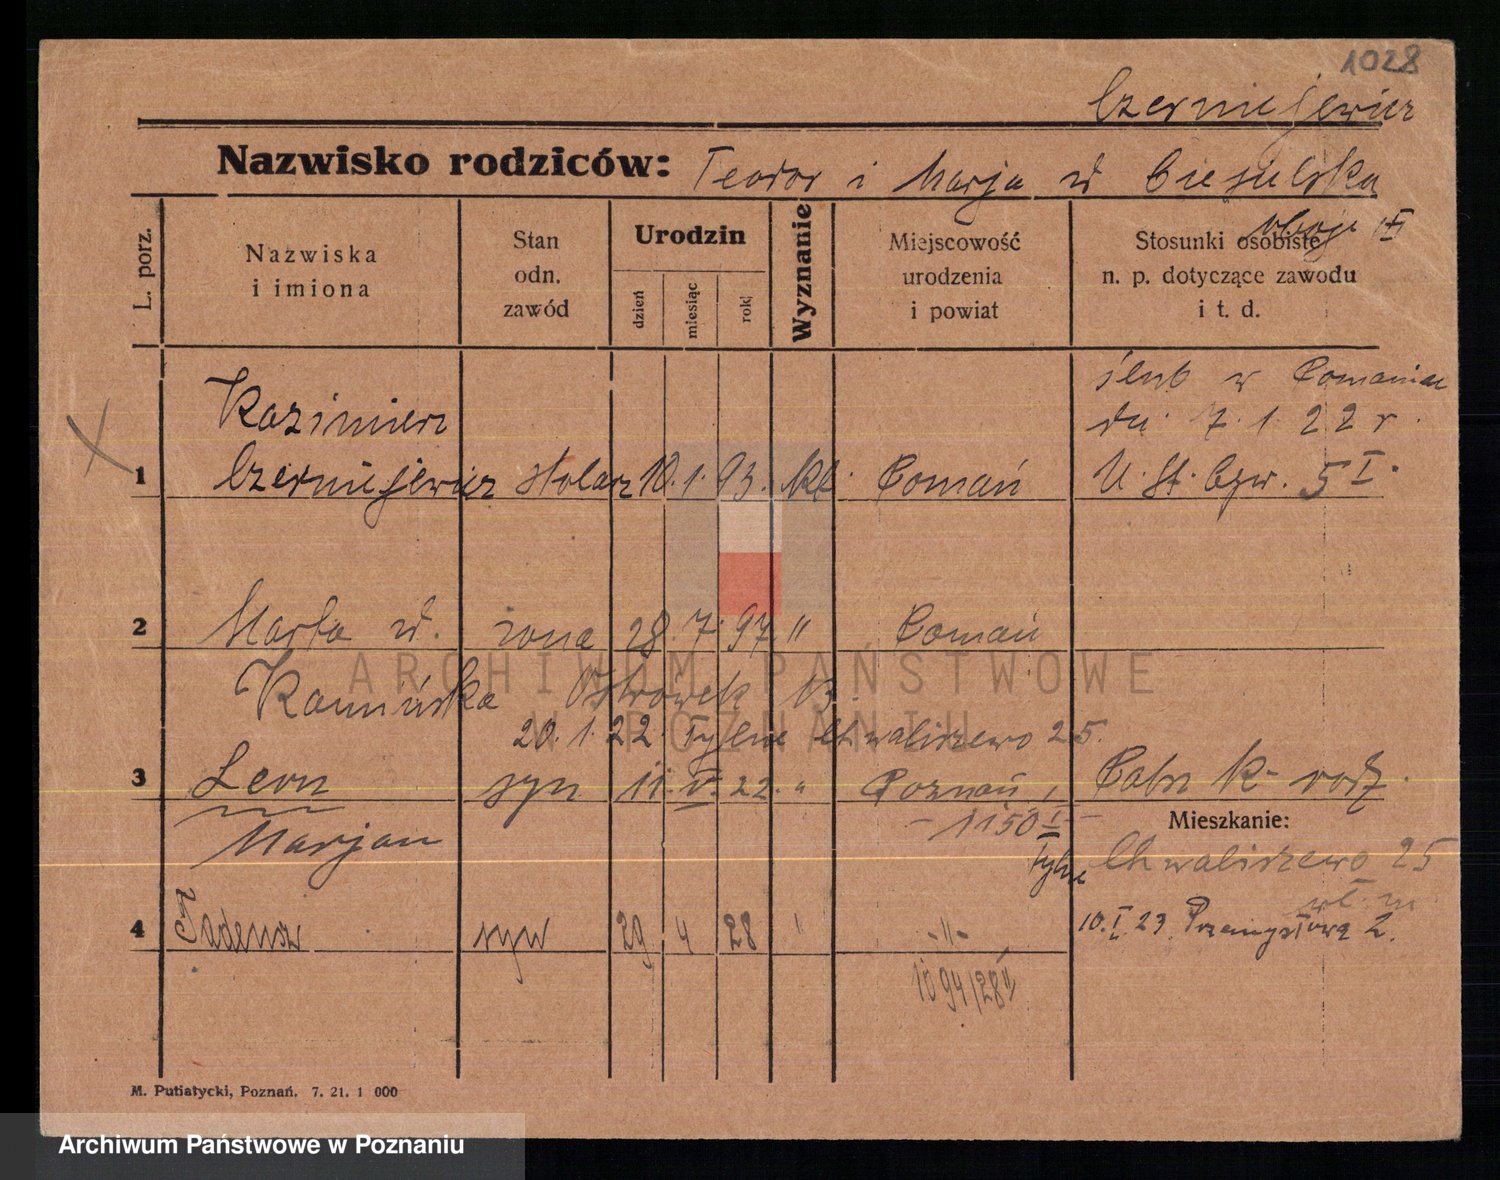 1028
Czerniejewicz
Nazwisko rodziców: Teodor i Marja
L. porz.
Nazwiska
i imiona
Stan
odn.
zawód
Urodzin
dzień
miesiąc
rok
Wyznanie
Miejscowość
urodzenia
i powiat
Stosunki osobiste
n. p. dotyczące zawodu
i t. d.
ślub w Poznaniu
dn. 7. 1. 22 r.
Kazimierz
1 Czerniejewicz stolarz 10. 1. 93. kt. Poznań
2 Marta żona 28. 7. 97. " Poznań
Kamińska Ostrówek 13.
20. 1. 22. Tylne Chwaliszewo 25.
3 Leon syn 11. V. 22. " Poznań
Marjan
1150 I
Mieszkanie:
Tylne Chwaliszewo 25
10. I. 23 Przemysłowa 2.
4 Tadeusz syn 29 4 28 " -"-
1094/28
M. Putiatycki, Poznań. 7. 21. 1 000
ARCHIWUM PAŃSTWOWE
W POZNANIU
Archiwum Państwowe w Poznaniu